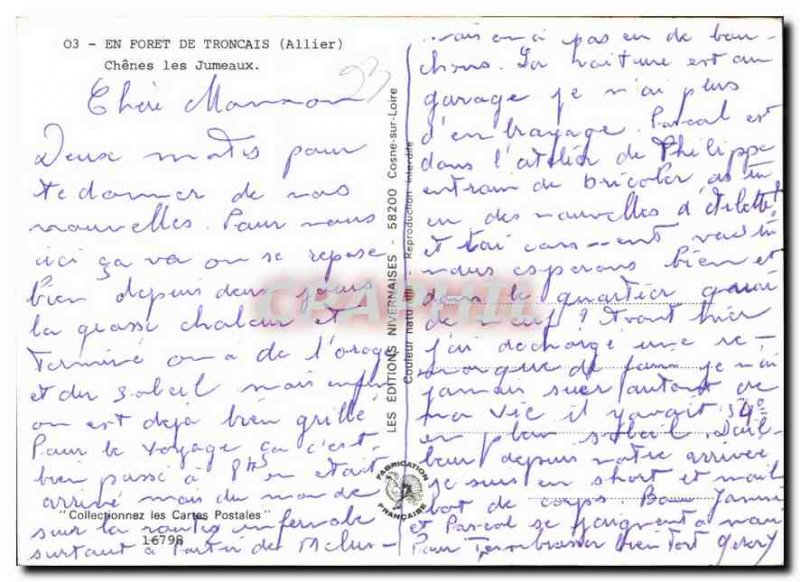 03 - EN FORET DE TRONCAIS (Allier)
Chênes les Jumeaux.
93
Chère Maman
Deux mots pour
te donner de nos
nouvelles. Pour nous
ici ça va on se repose
bien depuis deux jours
la grosse chaleur est
terminé on a de l'orage
et du soleil mais enfin
on est déjà bien grillé
Pour le voyage ça c'est
bien passé à 8hs on était
arrivé mais du monde
sur la route infernale
surtout à partir de Melun
"Collectionnez les Cartes Postales"
16798
LES ÉDITIONS NIVERNAISES - 58200 Cosne-sur-Loire
Couleur natu - Reproduction interdite
FABRICATION FRANÇAISE
CPAPHIL
mais on a pas eu de bou-
chons. La voiture est au
garage je n'ai plus
d'embrayage. Pascal est
dans l'atelier de Philippe
entrain de bricoler, as tu
eu des nouvelles d'
et toi comment vas tu
nous esperons bien et
dans le quartier quoi
de neuf ? Avant hier
j'ai decharge une re-
morque de je n'ai
jamais suer autant de
ma vie il y avait 54°
en plein soleil. D'ail-
leur depuis notre arrivée
je suis en short et mail
bot de corps. Bon
et Pascal se joignent a moi
Pour t'embrasser bien fort